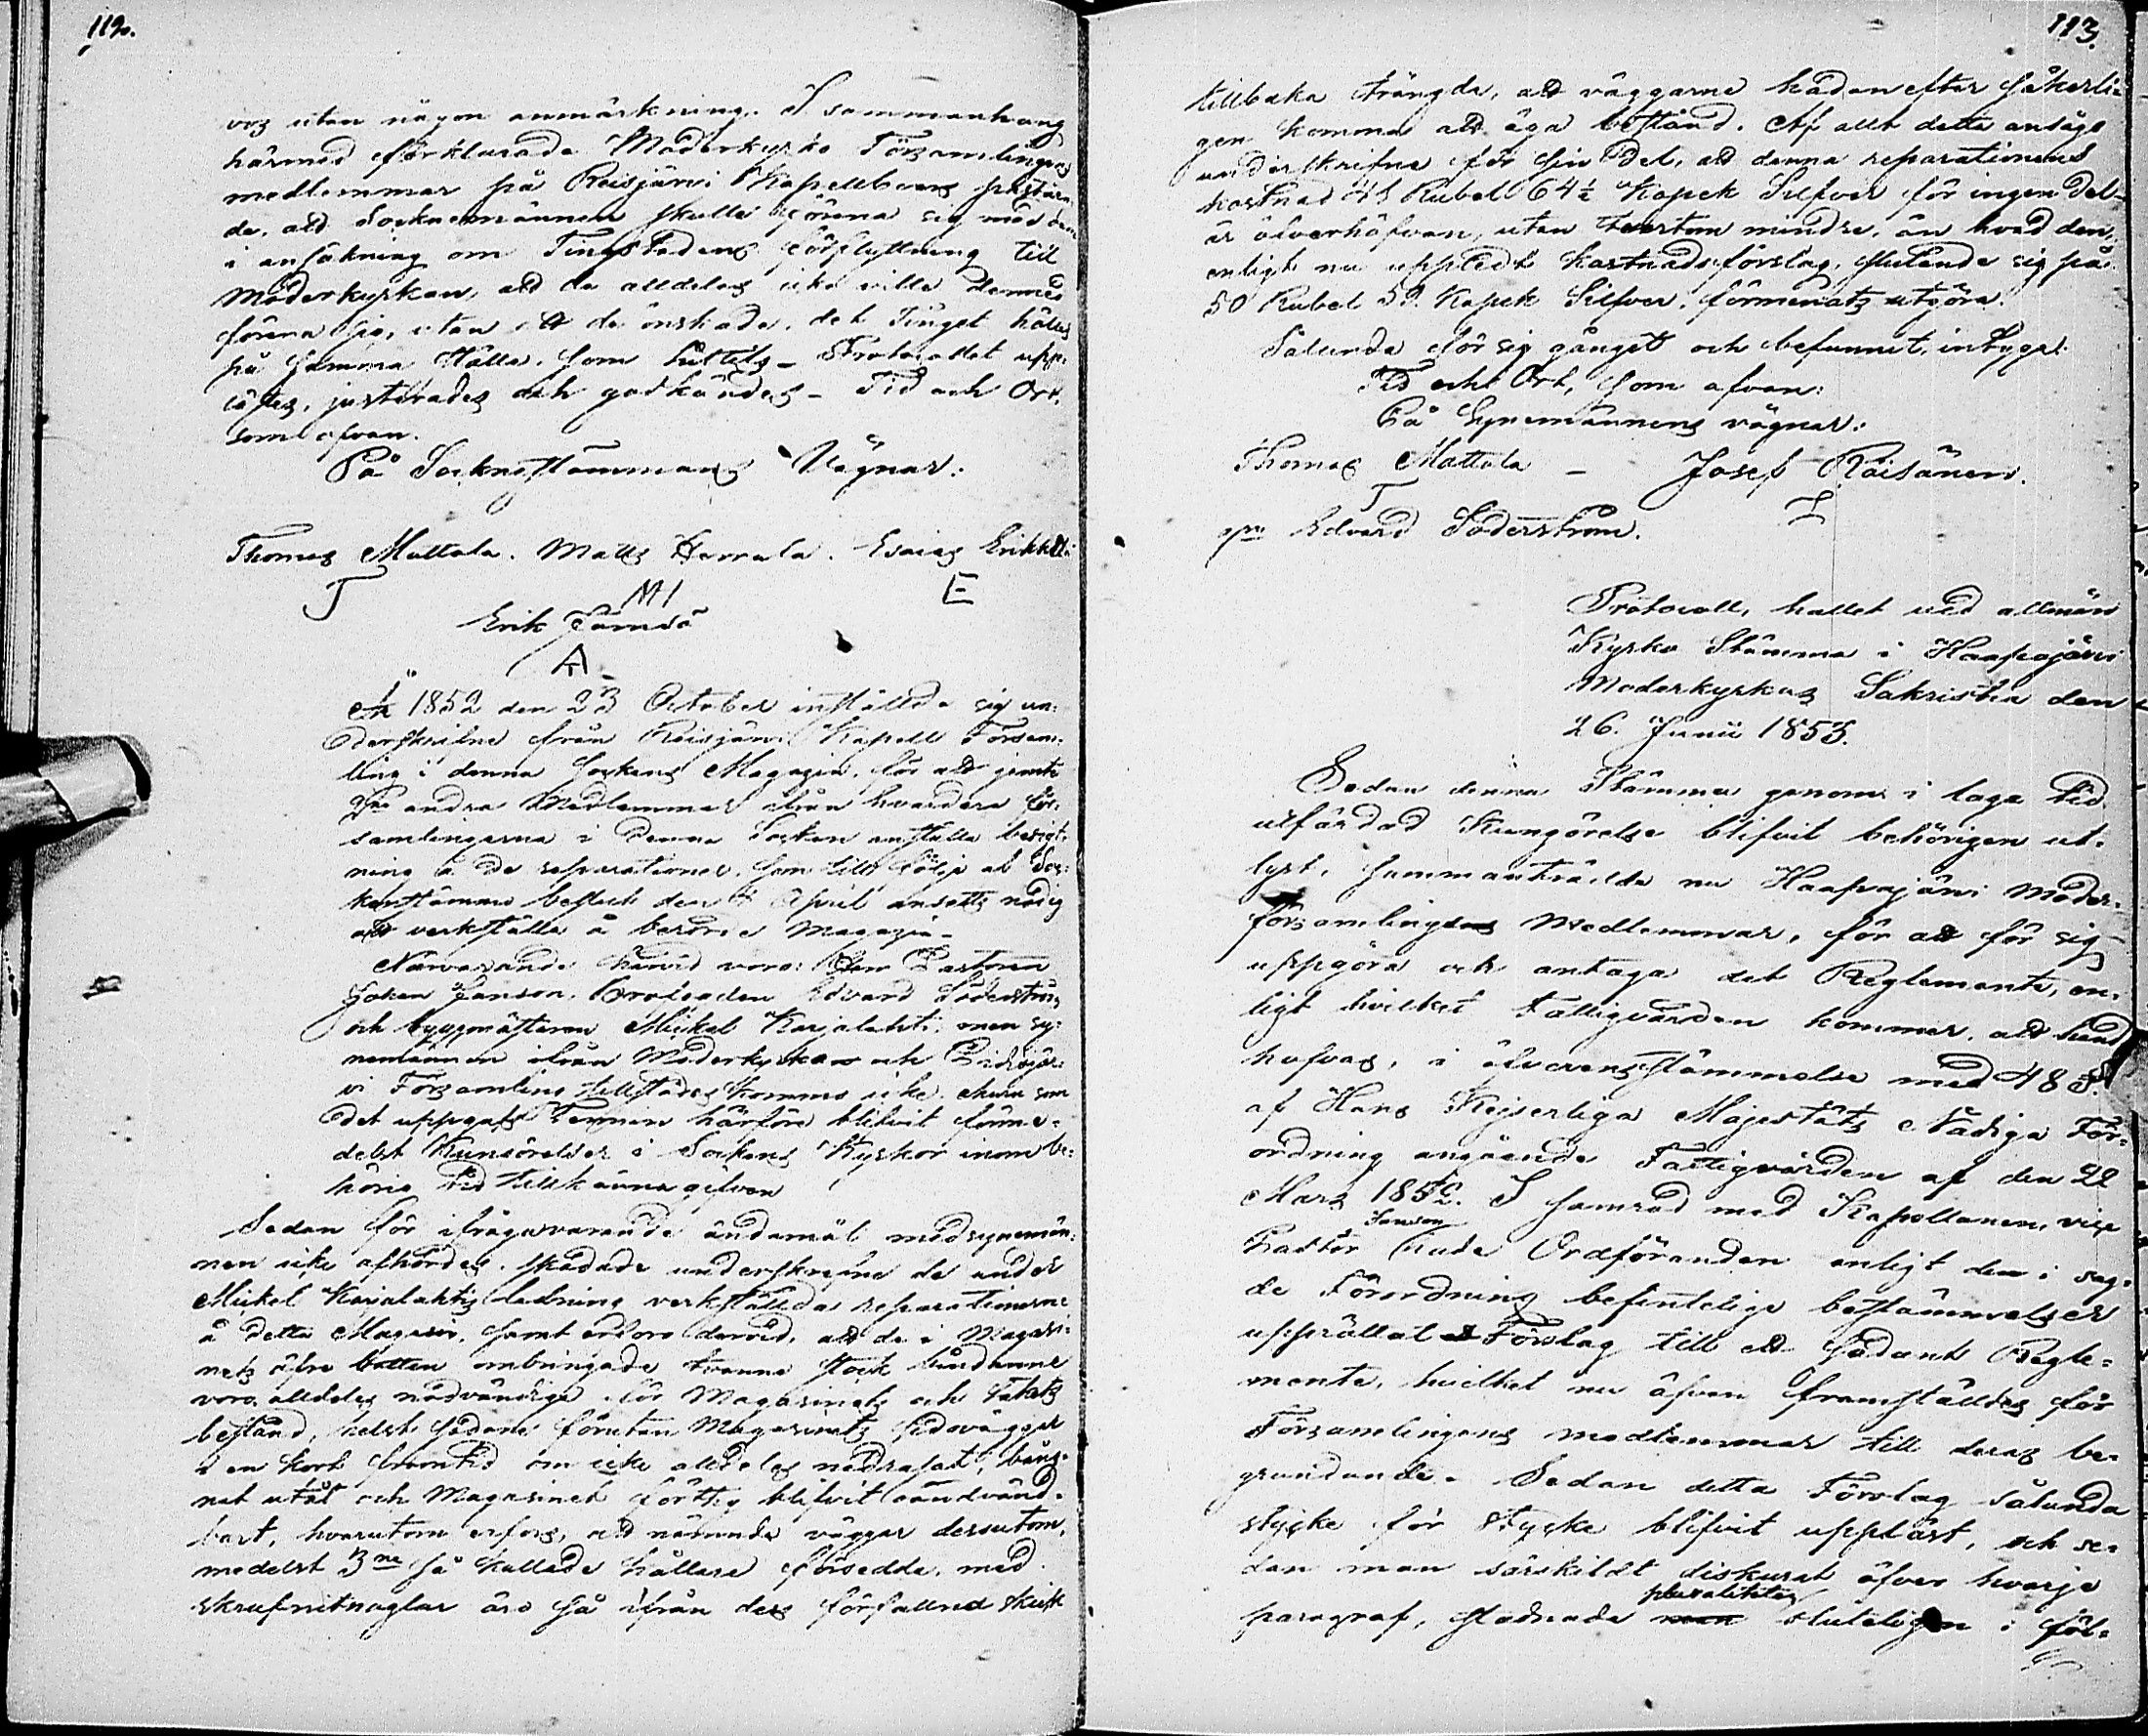 112.
vos utan någon anmärkning. I sammanhang
härmed förklarade Moderkyrko Församlingens
medlemmar på Reisjärvi Kapellboers påstående
de, att Socknemännen skulle förena sig med dem
i ansökning om Tingstadens förflyttning till
Moderkyrkan, att de alldeles icke ville dermed
förena sig, utan att de önskade, det Tinget hålles
på samma ställe, som hittills – Protocollet upp-
lästes, justerades och godkändes – Tid och Ort,
som ofvan.
På Socknestämmans Vägnar:
Thomas Mattola. Matts Hemula. Esaias Erikkilä
T M E
Erik Jämsä
A
År 1852 den 23 October inställde sig un-
derskrifne från Reisjärvi Kapell Försam-
ling i denna Sockens Magazin, för att jemte
andra Medlemmar ifrån hvardera för-
samlingarna i denna Socken anställa besigt-
ning å de reparationer, som till följe af Soc-
kenstämmo beslut den April ansetts nödig
att verkställa å berörde Magazin –
Närvarande härvid voro: Herr Pastoren
Johan Janson, Edvard Söderström
och byggmästaren Mickel Karjalahti, men sy-
nemännen ifrån Moderkyrkan och Pidisjär-
vi Församling tillstädes kommo icke, ehuru som
det uppgafs Termin härföre blifvit förme-
delst Kungörelser i Sockens Kyrkor inom be-
hörig tid tillkänna gifven
Sedan för ifrågavarande ändamål medsynemän-
nen icke afhördes, skådade underskrefne de under
Mickel Karjalahtis ledning verkställda reparationerne
å detta Magasin, samt erforo dervid, att de i Magasi-
nets öfre botten ombringade tvenne stock bindarne
voro alldeles nödvändiga för Magasinets och takets
bestånd, helst sådane förutan Magasinets sidoväggar
i en kort framtid om icke alldeles nedrasat, bäng-
nat utåt och Magasinet förthy blifvit oändvänd-
bart, hvarutom erfors, att nämnde väggar dessutom,
medelst 3ne så kallade hållare försedda, med
skrufmitnaglar äro så ifrån des förfallna skick
113.
tillbaka trängda, att väggarne hädanefter säkerli-
gen komma att äga bestånd. Af allt detta ansågo
underskrifne för sin del, att denna reparationens
kostnad 45 Rubel 64½ Kopek Silfver för ingen del
är öfverhöfvan, utan tvertom mindre, än hvad den,
enligt nu uppledt kostnadsförslag, slutande sig på
50 Rubel 52 Kopek Silfver, förmenats utgöra.
Sålunda för sig gånget och befunnit, intygas.
Tid och Ort, som ofvan:
På Synemännens vägnar:
Thomas Mattola – Josef Räisänen.
T I
Edvard Söderström.
Protocoll, hållet vid allmän
Kyrko Stämma i Haapajärvi
Moderkyrkas Sakristia den
26. Junii 1853.
Sedan denna Stämma genom i laga tid
utfärdad Kungörelse blifvit behörigen ut-
lyst, sammanträdde nu Haapajärvi Moder-
församlingens Medlemmar, för att för sig
uppgöra och antaga det Reglemente, en-
ligt hvilket Fattigvården kommer, att hand
hafvas, i öfverensstämmelse med 48 §.
af Hans Kejserliga Majestäts Nådiga För-
ordning angående Fattigvården af den 22
Mars 1852. I samråd med Kapellanen, vice
Janson
Pastor hade Ordföranden enligt den i sag-
de Förordning befintelige bestämmelser
upprättat Förslag till ett sådant Regle-
mente, hvilket nu äfven framställdes för
Församlingens medlemmar till deras be-
grundande. Sedan detta Förslag sålunda
stycke för stycke blifvit uppläst, och se-
dan man särskildt diskurat öfver hvarje
pluraliteten
paragraf, stadnade man sluteligen i föl-